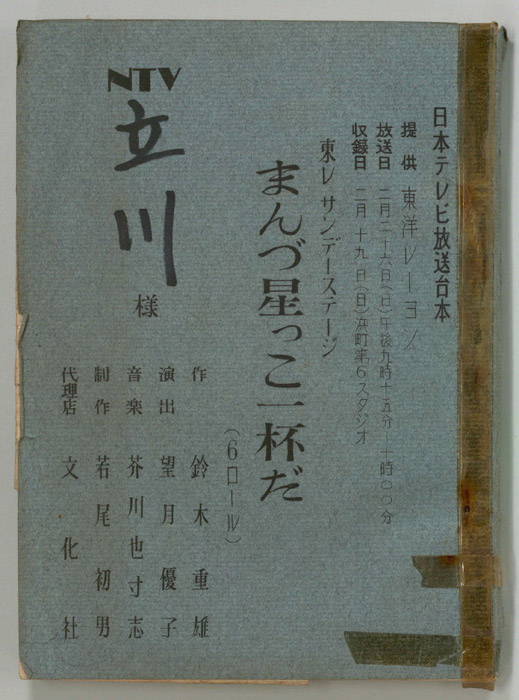 日本テレビ放送台本
提供 東洋レーヨン
放送日 二月二十六日(日)午後九時十五分―十時〇〇分
収録日 二月十九日(日)浜町第6スタジオ
東レ サンデーステージ
まんづ星っこ一杯だ
(6ロール)
作 鈴木重雄
演出 望月優子
音楽 芥川也寸志
制作 若尾初男
代理店 文化社
NTV
立川
様